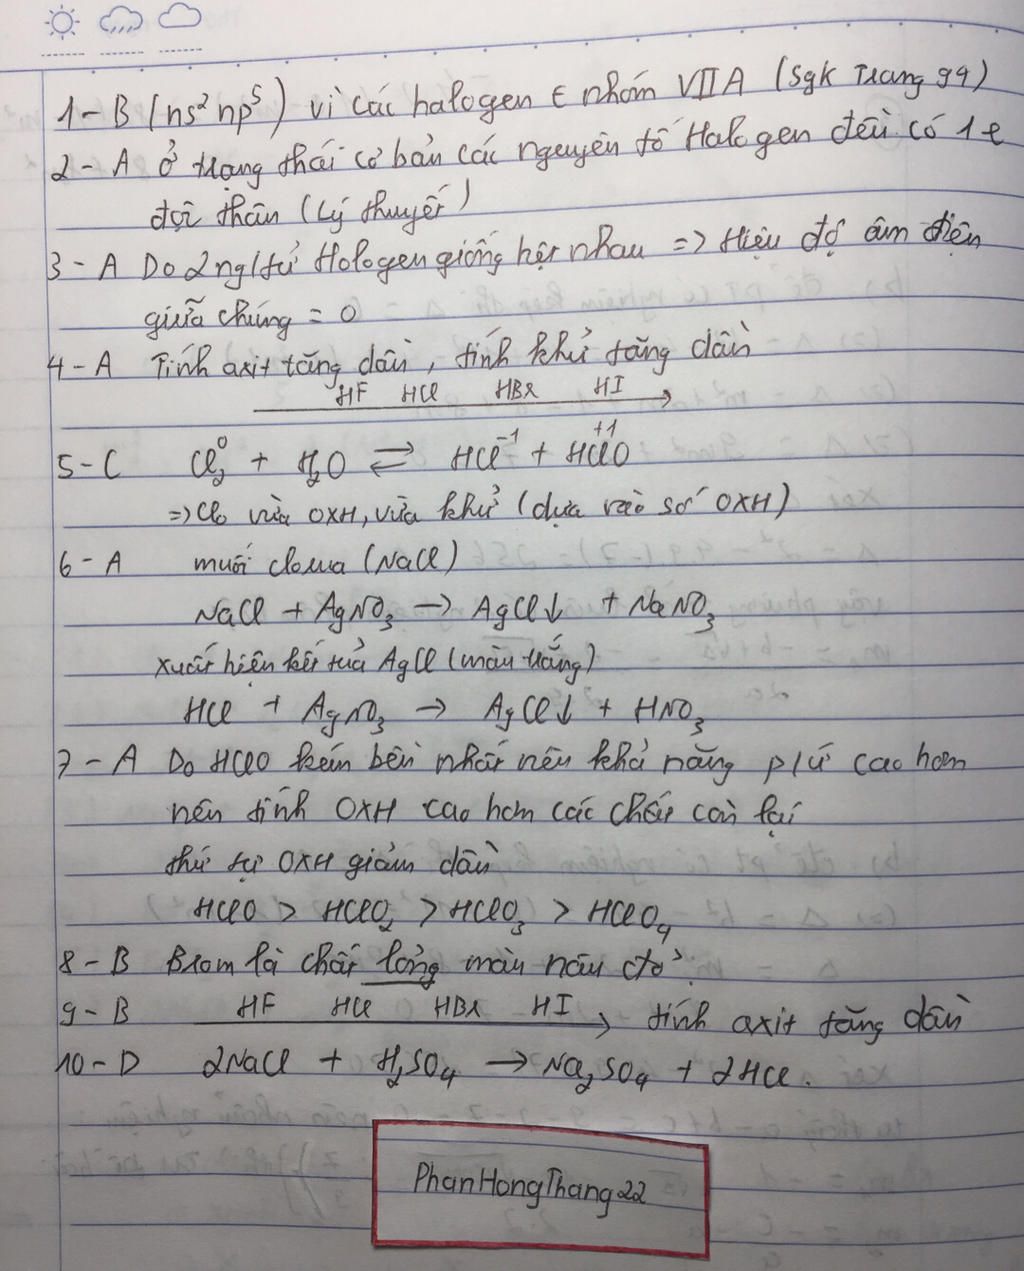 1-B (ns² np⁵) vì các halogen ∈ nhóm VIIA (Sgk Trang 94)
2-A Ở trạng thái cơ bản các nguyên tố Halogen đều có 1e
độc thân (Lý thuyết)
3-A Do 2 ng/tử Halogen giống hệt nhau => Hiệu độ âm điện
giữa chúng = 0
4-A Tính axit tăng dần, tính khử tăng dần
HF HCl HBr HI
5-C Cl₂⁰ + H₂O ⇌ HCl⁻¹ + HCl⁺¹O
=> Clo vừa OXH, vừa khử (dựa vào số OXH)
6-A muối clorua (NaCl)
NaCl + AgNO₃ → AgCl↓ + NaNO₃
xuất hiện kết tủa AgCl (màu trắng)
HCl + AgNO₃ → AgCl↓ + HNO₃
7-A Do HClO kém bền nhất nên khả năng p/ứ cao hơn
nên tính OXH cao hơn các chất còn lại
thứ tự OXH giảm dần
HClO > HClO₂ > HClO₃ > HClO₄
8-B Brom là chất lỏng màu nâu đỏ
9-B HF HCl HBr HI → tính axit tăng dần
10-D 2NaCl + H₂SO₄ → Na₂SO₄ + 2HCl.
PhanHongThang22